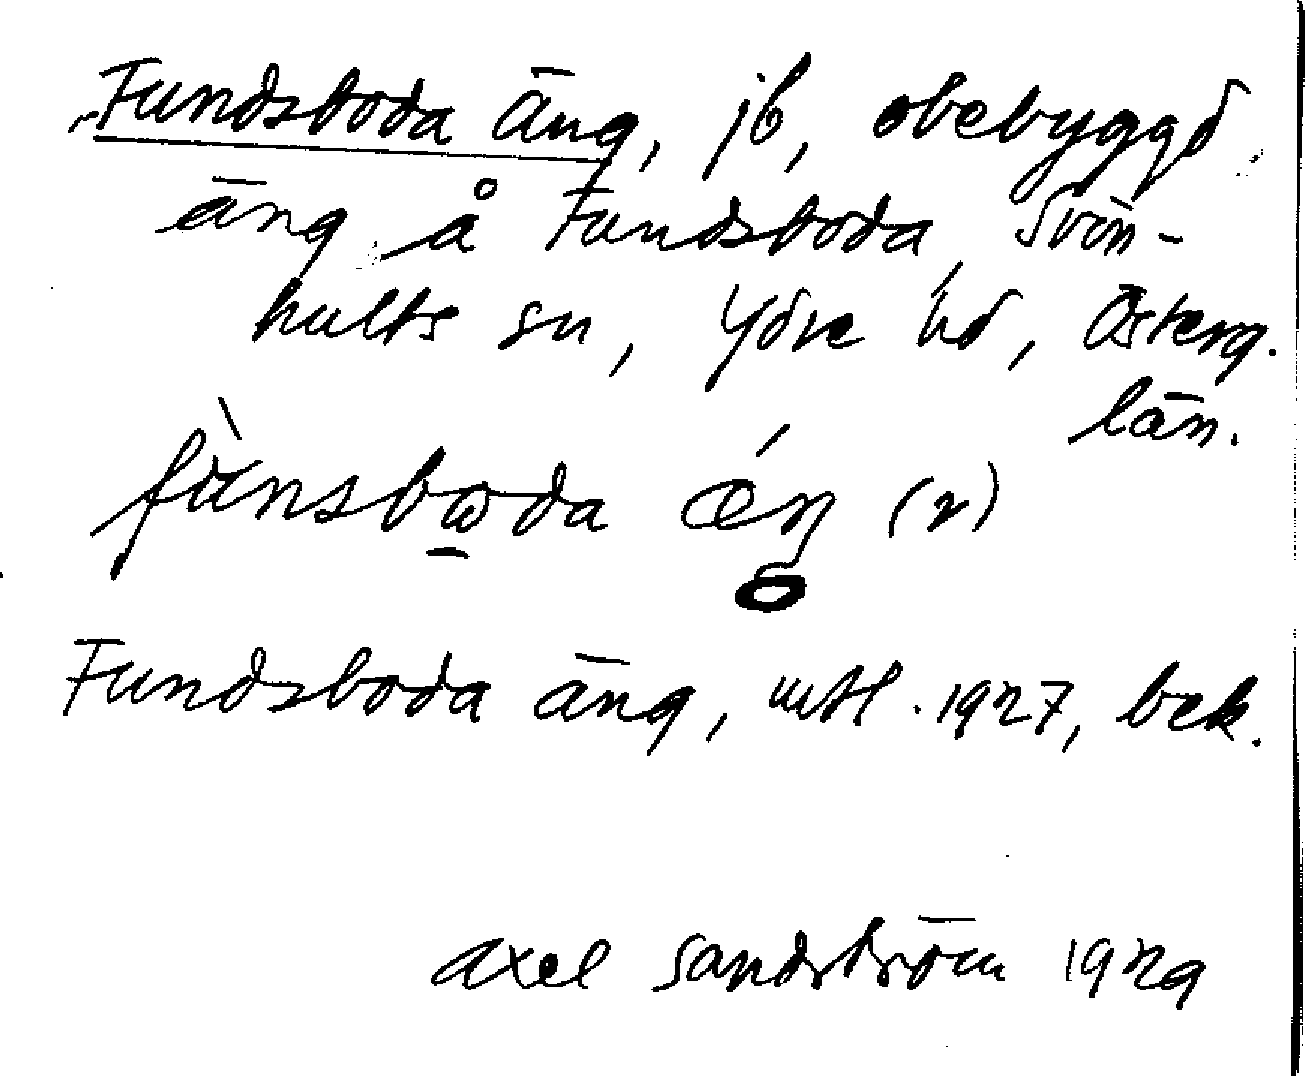 Fundsboda äng, jb, obebyggd
äng å Fundsboda, Svin-
hults sn, Ydre hd, Österg.
län.
fùnsbωda ǽŋ (r)
Fundsboda äng, mtl. 1927, bek.
Axel Sandström 1929